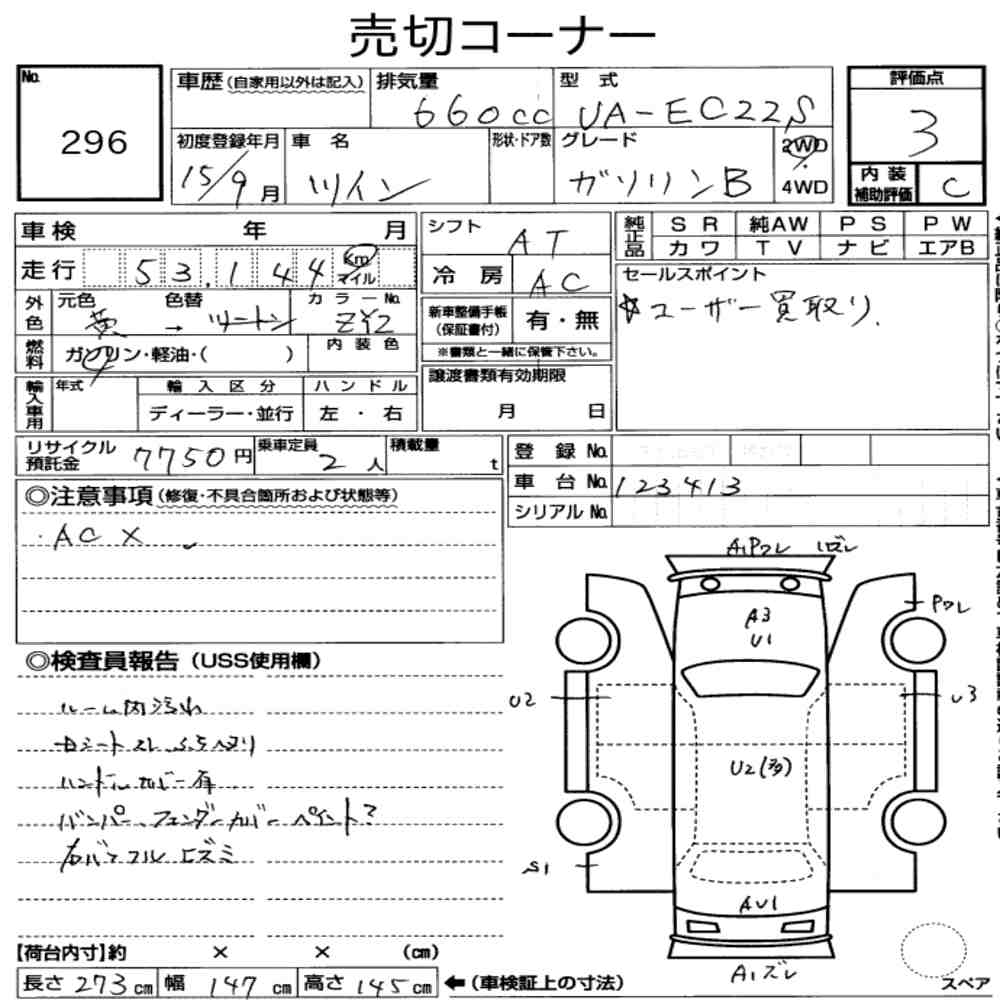 売切コーナー
No. 296
車歴(自家用以外は記入) 排気量 660cc 型式 UA-EC22S
初度登録年月 15/9月 車名 ツイン 形状・ドア数 グレード ガソリンB 2WD 4WD
評価点 3
内装補助評価 C
車検 年 月
走行 53,144 Km マイル
外色 元色 黄 → 色替 ツートン カラーNo. ZY2
燃料 ガソリン・軽油・( ) 内装色
輸入車用 年式 輸入区分 ディーラー・並行 ハンドル 左・右
シフト AT
冷房 AC
新車整備手帳(保証書付) 有・無
※書類と一緒に保管下さい。
譲渡書類有効期限 月 日
純正品 SR 純AW PS PW
カワ TV ナビ エアB
セールスポイント
☆ユーザー買取り.
リサイクル預託金 7750円 乗車定員 2人 積載量 t
登録No.
車台No. 123413
シリアルNo.
◎注意事項(修復・不具合箇所および状態等)
・AC ×
◎検査員報告(USS使用欄)
ルーム内汚れ
ハンドルカバー有
バンパー、フェンダーカバー ペイント?
A1Pワレ
A3
U1
Pワレ
U2
U3
U2(多)
S1
AU1
A1ズレ
スペア
【荷台内寸】約 × × (cm)
長さ 273cm 幅 147cm 高さ 145cm ←(車検証上の寸法)